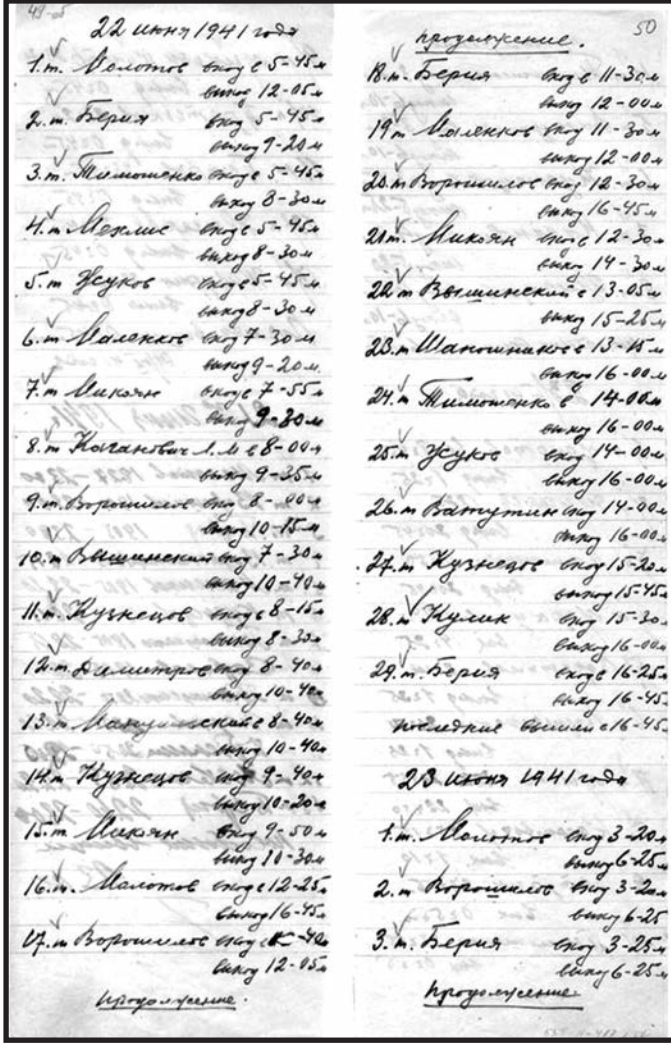 22 июня 1941 года
1. т. Молотов вход в 5-45м
выход 12-05м
2. т. Берия вход 5-45м
выход 9-20м
3. т. Тимошенко вход в 5-45м
выход 8-30м
4. т. Мехлис вход в 5-45м
выход 8-30м
5. т. Жуков вход в 5-45м
выход 8-30м
6. т. Маленков вход 7-30м.
выход 9-20м.
7. т Микоян вход в 7-55м
выход 9-30м
8. т. Каганович Л.М в 8-00м
выход 9-35м
9. т. Ворошилов вход 8-00м
выход 10-15м
10. т Вышинский вход 7-30м
выход 10-40м
11. т. Кузнецов вход в 8-15м
выход 8-30м
12. т. Димитров вход 8-40м
выход 10-40м
13. т. Мануильский в 8-40м
выход 10-40м
14. т Кузнецов вход 9-40м
выход 10-20м
15. т. Микоян вход 9-50м
выход 10-30м
16. т. Молотов вход в 12-25м
выход 16-45м
17. т Ворошилов вход в -40м
выход 12-05м
продолжение.
50
продолжение.
18. т. Берия вход в 11-30м
выход 12-00м
19 т Маленков вход 11-30м
выход 12-00м
20. т Ворошилов вход 12-30м
выход 16-45м
21 т. Микоян вход в 12-30м
выход 14-30м
22 т Вышинский в 13-05м
выход 15-25м
23. т Шапошников в 13-15м
выход 16-00м
24. т Тимошенко в 14-00м
выход 16-00м
25. т Жуков вход 14-00м
выход 16-00м
26. т Ватутин вход 14-00м
выход 16-00м
27. т Кузнецов вход 15-20м
выход 15-45м
28. т Кулик вход 15-30м
выход 16-00м
29. т. Берия вход в 16-25м
выход 16-45
последние вышли в 16-45м
23 июня 1941 года
1. т. Молотов вход 3-20м
выход 6-25м
2. т Ворошилов вход 3-20м
выход 6-25
3. т. Берия вход 3-25м
выход 6-25м
продолжение.